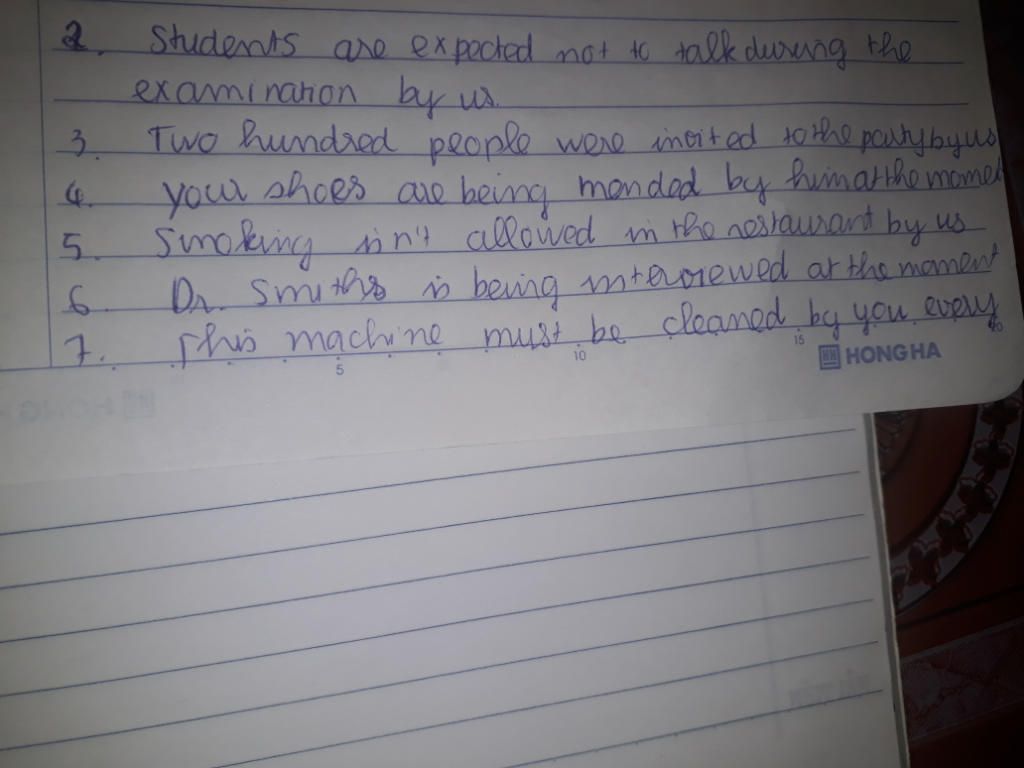 2. Students are expected not to talk during the
examination by us.
3. Two hundred people were invited to the party by us
4. your shoes are being mended by him at the moment
5. Smoking isn't allowed in the restaurant by us
6 Dr. Smiths is being interviewed at the moment
7. This machine must be cleaned by you every
5 10 15 20
HONG HA